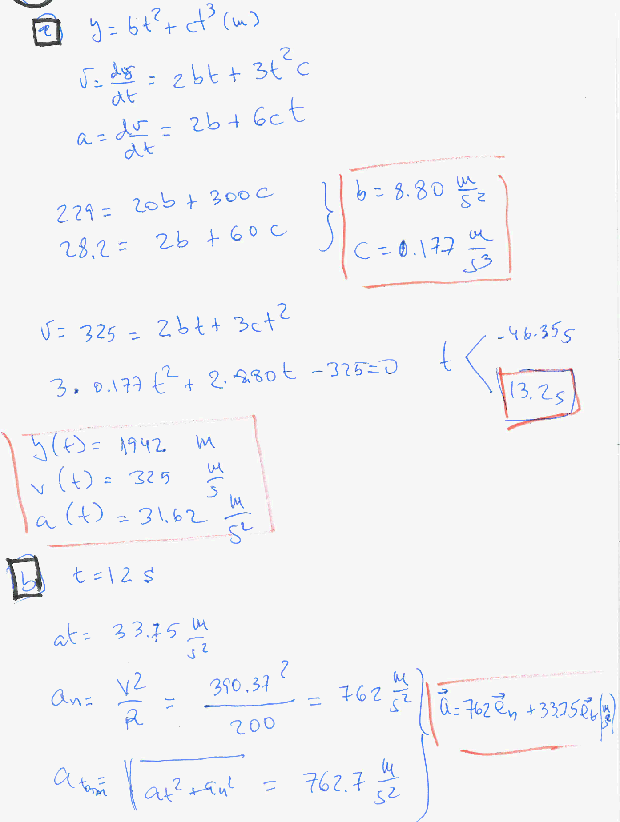 a y = bt² + ct³ (m)
v = dy/dt = 2bt + 3t²c
a = dv/dt = 2b + 6ct
229 = 20b + 300c
28,2 = 2b + 60c
b = 8.80 m/s²
c = 0.177 m/s³
v = 325 = 2bt + 3ct²
3. 0.177t² + 2. 8.80t - 325 = 0
t < -46.35s
13.2s
y(t) = 1942 m
v(t) = 325 m/s
a(t) = 31.62 m/s²
b t = 12 s
at = 33.75 m/s²
an = v²/R = 390.37²/200 = 762 m/s²
= √(at² + an²) = 762.7 m/s²